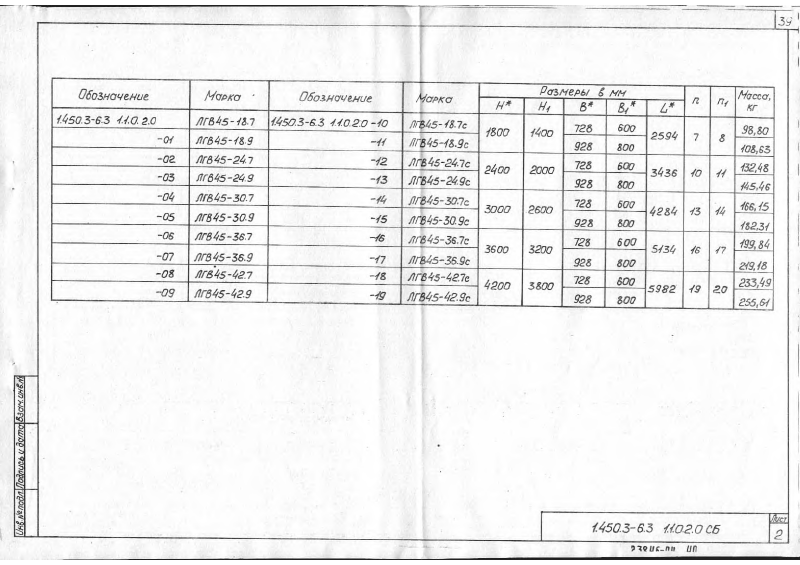 39
Обозначение Марка Обозначение Марка Размеры в мм n n1 Масса, кг
H* H1 B* B1* L*
1.450.3-6.3 1.1.0.2.0 ЛГВ45-18.7 1.450.3-6.3 1.1.0.2.0 -10 ЛГВ45-18.7с 1800 1400 728 600 2594 7 8 98,80
-01 ЛГВ45-18.9 -11 ЛГВ45-18.9с 928 800 108,63
-02 ЛГВ45-24.7 -12 ЛГВ45-24.7с 2400 2000 728 600 3436 10 11 132,48
-03 ЛГВ45-24.9 -13 ЛГВ45-24.9с 928 800 145,46
-04 ЛГВ45-30.7 -14 ЛГВ45-30.7с 3000 2600 728 600 4284 13 14 166,15
-05 ЛГВ45-30.9 -15 ЛГВ45-30.9с 928 800 182,31
-06 ЛГВ45-36.7 -16 ЛГВ45-36.7с 3600 3200 728 600 5134 16 17 199,84
-07 ЛГВ45-36.9 -17 ЛГВ45-36.9с 928 800 219,18
-08 ЛГВ45-42.7 -18 ЛГВ45-42.7с 4200 3800 728 600 5982 19 20 233,49
-09 ЛГВ45-42.9 -19 ЛГВ45-42.9с 928 800 255,61
Инв.№подл. Подпись и дата Взам.инв.№
1.450.3-6.3 1.1.0.2.0 СБ
Лист
2